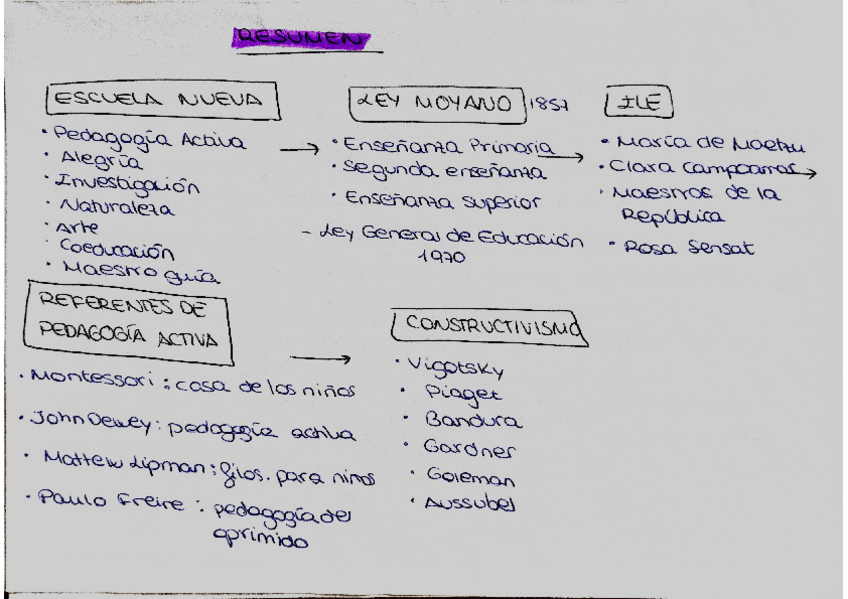 RESUMEN
ESCUELA NUEVA
· Pedagogía Activa
· Alegría
· Investigación
· Naturaleza
· Arte
· Coeducación
· Maestro guía
LEY MOYANO 1857
· Enseñanza Primaria
· Segunda enseñanza
· Enseñanza superior
- Ley General de Educación
1970
ILE
· María de Maetzu
· Clara Campoamor
· Maestros de la
República
· Rosa Sensat
REFERENTES DE
PEDAGOGÍA ACTIVA
· Montessori: casa de los niños
· John Dewey: pedagogía activa
· Mattew Lipman: filos. para niños
· Paulo Freire: pedagogía del
oprimido
CONSTRUCTIVISMO
· Vigotsky
· Piaget
· Bandura
· Gardner
· Goleman
· Aussubel